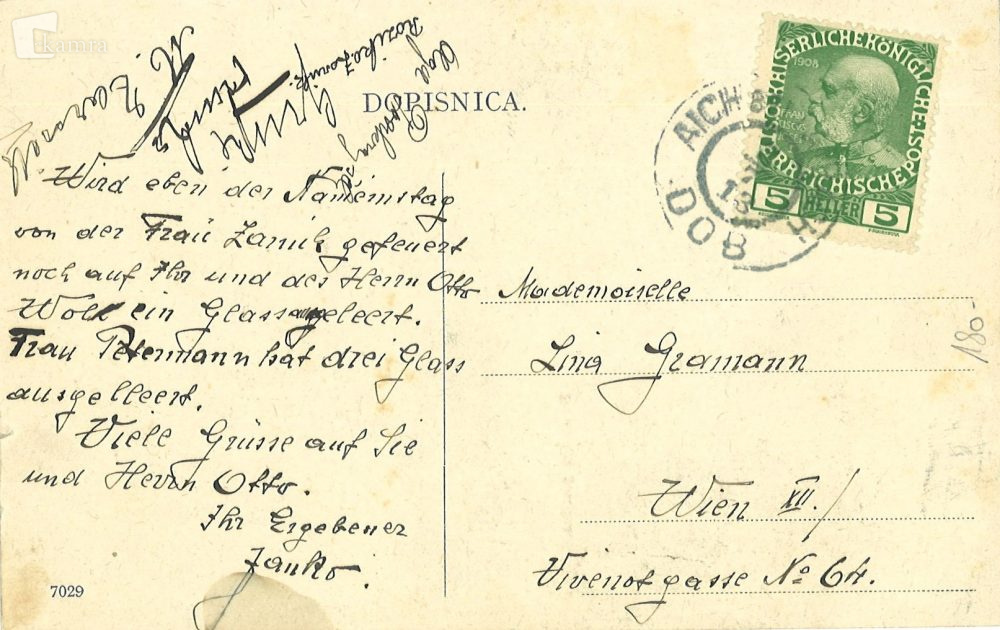 kamra
DOPISNICA.
Wird eben der Namenstag
von der Frau Zamik gefeuert
noch auf Ihr und des Herrn Otto
Woll ein Glass angeleert.
Frau Petermann hat drei Glass
ausgelleert.
Viele Grüsse auf Sie
und Herrn Otto.
Ihr Ergebener
Janko.
7029
AICH
DOB
KAISERLICHEKÖNIGLICHE
ÖSTERREICHISCHEPOST
1908
5 HELLER 5
Mademoiselle
Lina Gramann
Wien XII./
Vivenotgasse No 64.
180-